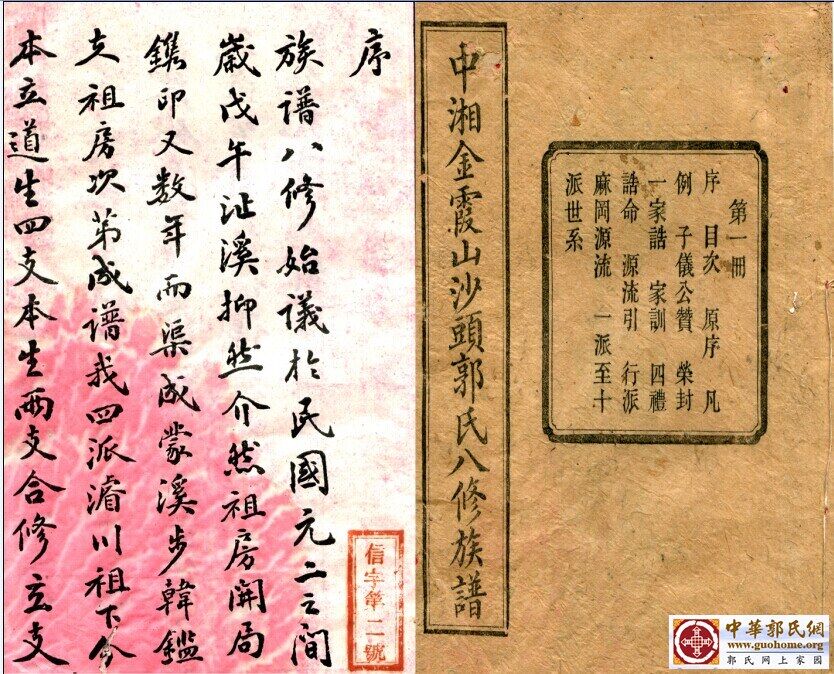 中湘金霞山沙頭郭氏八修族譜
第一冊
序 目次 原序 凡
例 子儀公贊 榮封
一家誥 家訓 四禮
誥命 源流引 行派
麻岡源流 一派至十
派世系
序
族譜八修始議於民國元二之間
歲戊午沚溪抑然介然祖房開局
鐫印又数年而渠成蒙溪步韓鑑
立祖房次第成譜我四派濬川祖下分
本立道生四支本生兩支合修立支
信字第二號
中華郭氏網
www.guohome.org
郭氏网上家园